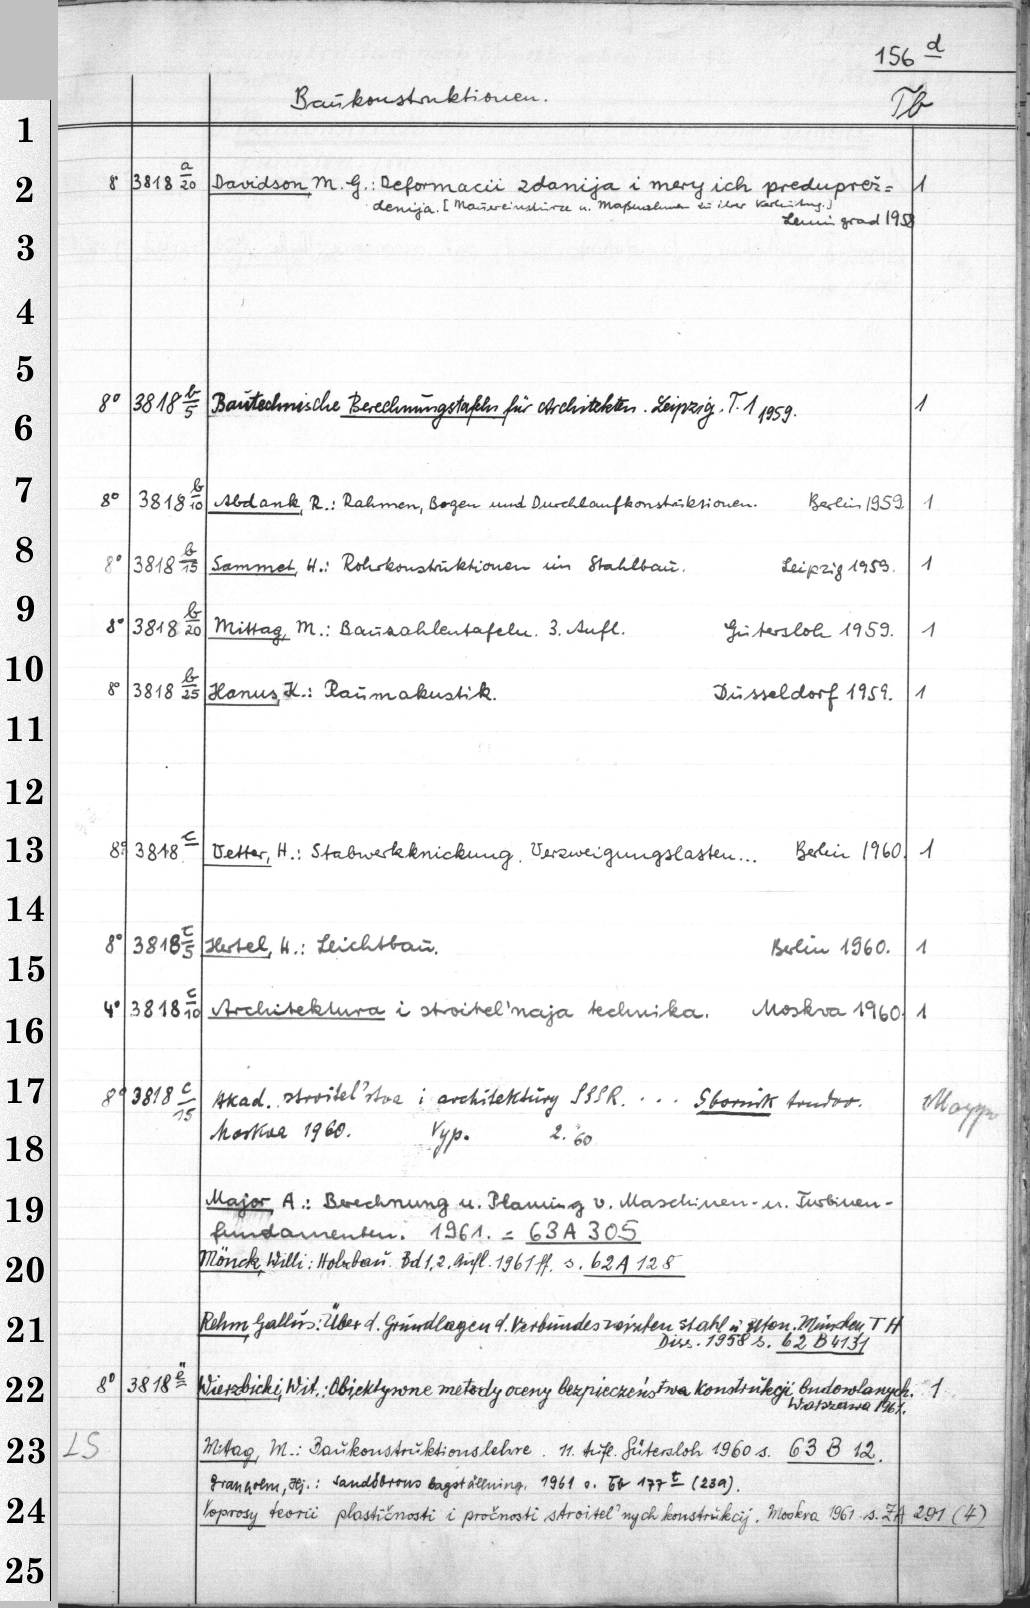 156 d
Baukonstruktionen.
Tb
1
2
8° 3818 a/20 Davidson, M. G.: Deformacii zdanija i mery ich preduprež= 1
denija. [Mauereinstürze u. Maßnahmen zu ihrer Verhütung.]
Leningrad 1958
3
4
5
8° 3818 b/5 Bautechnische Berechnungstafeln für Architekten. Leipzig. T. 1 1959. 1
6
7
8° 3818 b/10 Abdank, R.: Rahmen, Bogen und Durchlaufkonstruktionen. Berlin 1959 1
8
8° 3818 b/15 Sammet, H.: Rohrkonstruktionen im Stahlbau. Leipzig 1959. 1
9
8° 3818 b/20 Mittag, M.: Bauzahlentafeln. 3. Aufl. Gütersloh 1959. 1
10
8° 3818 b/25 Hanus, K.: Raumakustik. Düsseldorf 1959. 1
11
12
13
8° 3818 c Vetter, H.: Stabwerkknickung. Verzweigungslasten... Berlin 1960. 1
14
8° 3818 c/5 Hertel, H.: Leichtbau. Berlin 1960. 1
15
4° 3818 c/10 Architektura i stroitel'naja technika. Moskva 1960. 1
16
17
8° 3818 c/15 Akad. stroitel'stva i architektury SSSR. ... Sbornik trudov.
Moskva 1960. Vyp. 2. 60
18
19
Major, A.: Berechnung u. Planung v. Maschinen- u. Turbinen-
fundamenten. 1961. = 63 A 305
20
Mönck, Willi: Holzbau. Bd 1, 2. Aufl. 1961 ff. s. 62 A 128
21
Rehm, Gallus: Über d. Grundlagen d. Verbundes zwischen Stahl u. Beton. München T H
Diss. 1958 s. 62 B 4131
22
8° 3818 e Wierzbicki, Wit.: Obiektywne metody oceny bezpieczeństwa konstrukcji budowlanych. 1
Warszawa 1961.
23
LS Mittag, M.: Baukonstruktionslehre. 11. Aufl. Gütersloh 1960 s. 63 B 12.
Granholm, Hj.: Sandöbrons bagställning. 1961 s. Tb 177 t (23a).
24
Voprosy teorii plastičnosti i pročnosti stroitel'nych konstrukcij. Moskva 1961 s. ZA 291 (4)
25